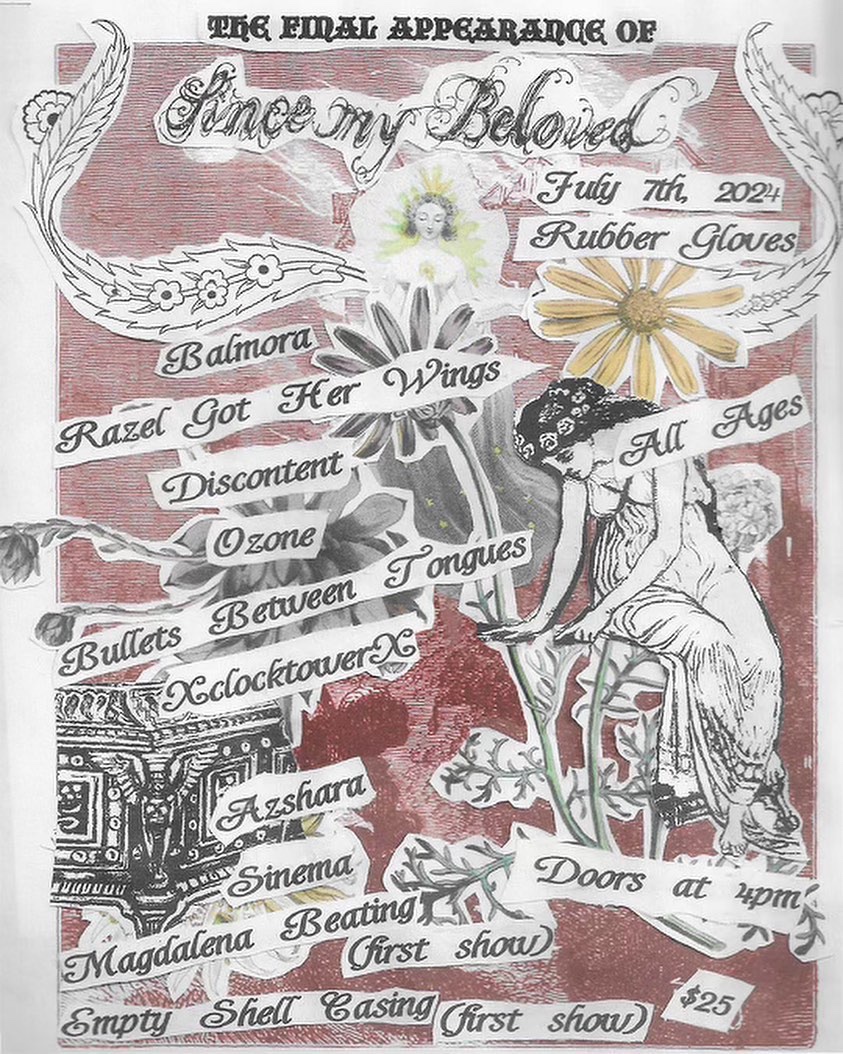 THE FINAL APPEARANCE OF
Since my Beloved
July 7th, 2024
Rubber Gloves
Balmora
Razel Got Her Wings
All Ages
Discontent
Ozone
Bullets Between Tongues
XclocktowerX
Azshara
Sinema
Doors at 4pm
Magdalena Beating
(first show)
$25
Empty Shell Casing (first show)